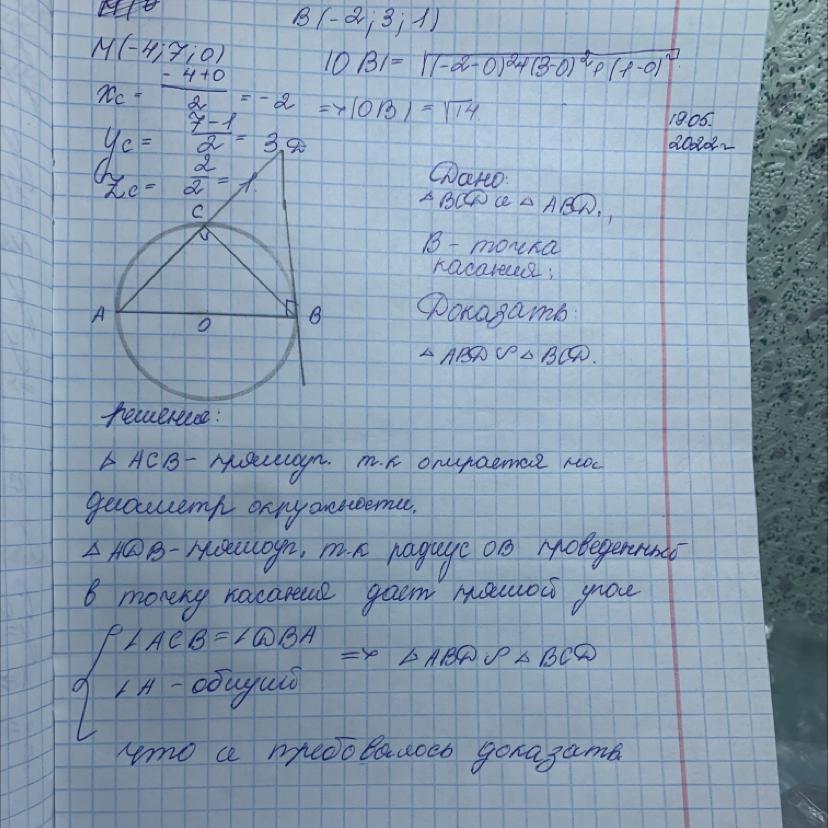 B(-2; 3; 1)
M(-4; 7; 0)
|OB| = √(-2-0)²+(3-0)²+(1-0)²
xc = -4+0/2 = -2 => |OB| = √14
yc = 7-1/2 = 3
zc = 2/2 = 1.
19.05.
2022г
D
C
A
O
B
Дано:
△BCD и △ABD.,
B - точка
касания;
Доказать:
△ABD ∽ △BCD.
Решение:
△ACB - прямоуг. т.к опирается на
диаметр окружности.
△ADB - прямоуг, т.к радиус OB проведенный
в точку касания дает прямой угол
{ ∠ACB = ∠DBA
∠A - общий => △ABD ∽ △BCD
что и требовалось доказать